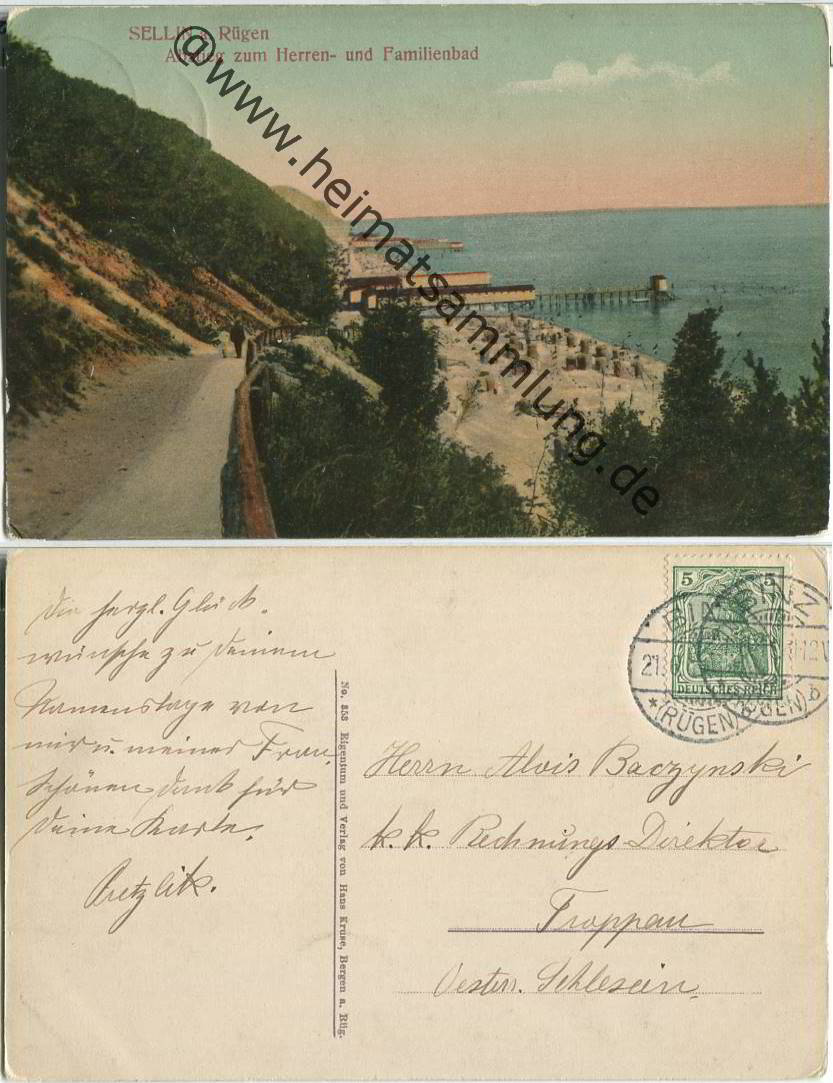 SELLIN a. Rügen
Abstieg zum Herren- und Familienbad
@www.heimatsammlung.de
Die herzl. Glück-
wünsche zu Deinem
Namenstage von
mir u. meiner Frau.
Schönen Dank für
Deine Karte.
No. 353 Eigentum und Verlag von Hans Kruse, Bergen a. Rüg.
5 5
DEUTSCHES REICH
BINZ
(RÜGEN)
(RÜGEN) b
Herrn Alois Baczynski
k. k. Rechnungs-Direktor
Troppau
Oesterr. Schlesien.